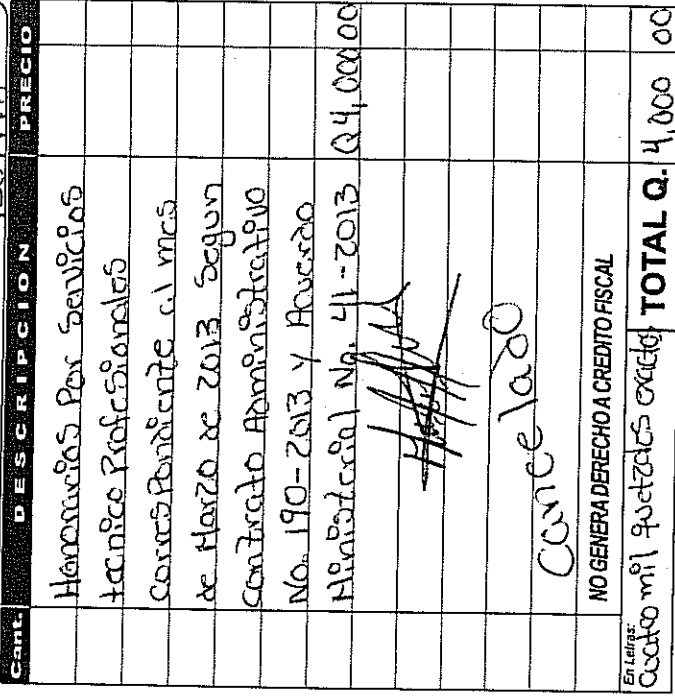 Cant. DESCRIPCION PRECIO
Honorarios Por Servicios
tecnico Profesionales
correspondiente al mes
de Marzo de 2013 Segun
Contrato Administrativo
No. 190-2013 y Acuerdo
Ministerial No. 41-2013 Q4,000 00
Cancelado
NO GENERA DERECHO A CREDITO FISCAL
En Letras:
Cuatro mil quetzales exactos TOTAL Q. 4,000 00